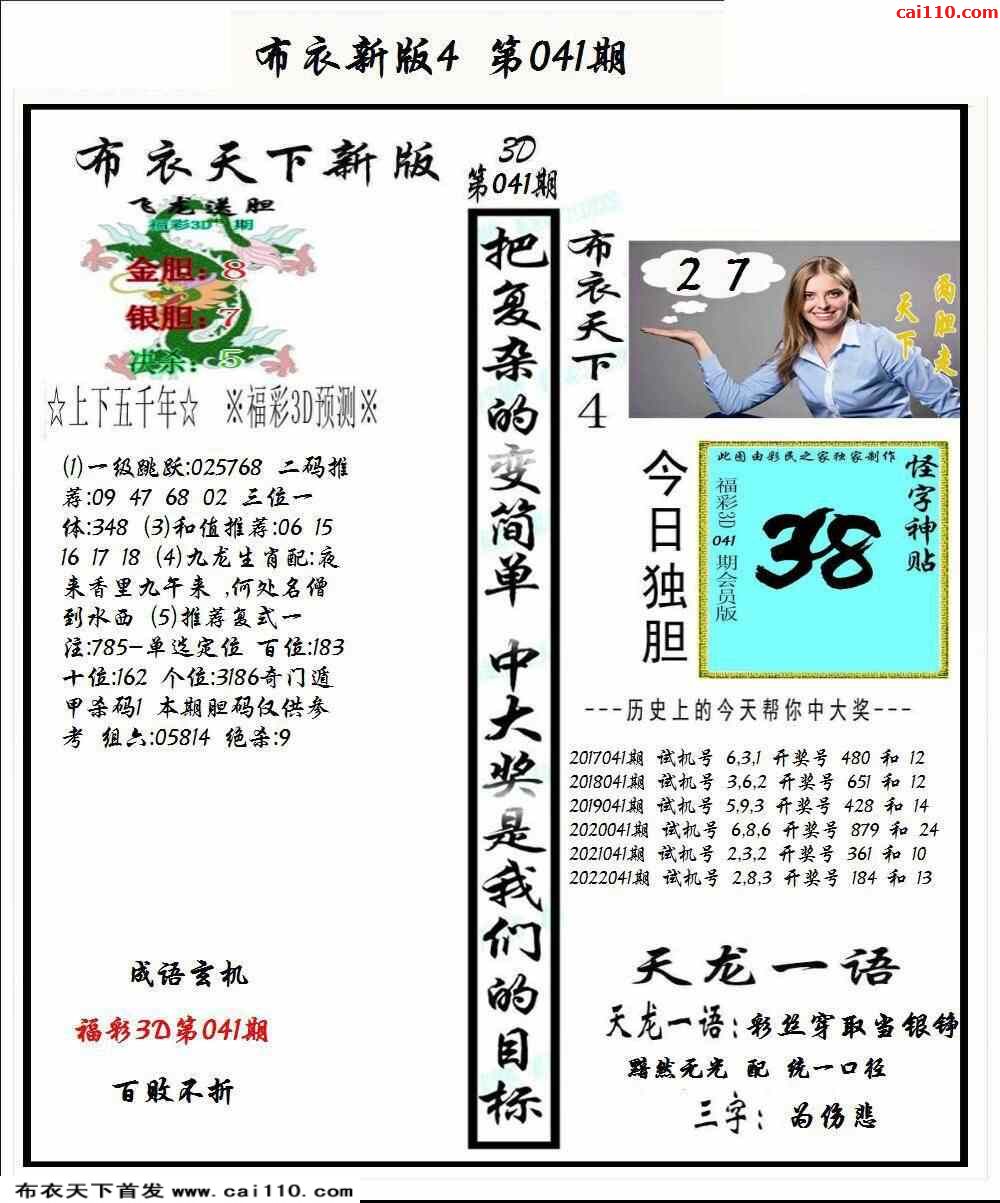 cai110.com
布衣新版4 第041期
布衣天下新版
飞龙送胆
福彩3D 期
金胆：8
银胆：7
决杀：5
☆上下五千年☆ ※福彩3D预测※
(1)一级跳跃:025768 二码推
荐:09 47 68 02 三位一
体:348 (3)和值推荐:06 15
16 17 18 (4)九龙生肖配:夜
来香里九午来 ,何处名僧
到水西 (5)推荐复式一
注:785-单选定位 百位:183
十位:162 个位:3186奇门遁
甲杀码1 本期胆码仅供参
考 组六:05814 绝杀:9
成语玄机
福彩3D第041期
百败不折
3D
第041期
把复杂的变简单 中大奖是我们的目标
布衣天下4
2 7
两胆走
天下
今日独胆
此图由彩民之家独家制作
怪字神贴
福彩3D 041 期会员版
38
---历史上的今天帮你中大奖---
2017041期 试机号 6,3,1 开奖号 480 和 12
2018041期 试机号 3,6,2 开奖号 651 和 12
2019041期 试机号 5,9,3 开奖号 428 和 14
2020041期 试机号 6,8,6 开奖号 879 和 24
2021041期 试机号 2,3,2 开奖号 361 和 10
2022041期 试机号 2,8,3 开奖号 184 和 13
天龙一语
天龙一语：彩丝穿取当银铮
黯然无光 配 统一口径
三字： 为伤悲
布衣天下首发 www.cai110.com